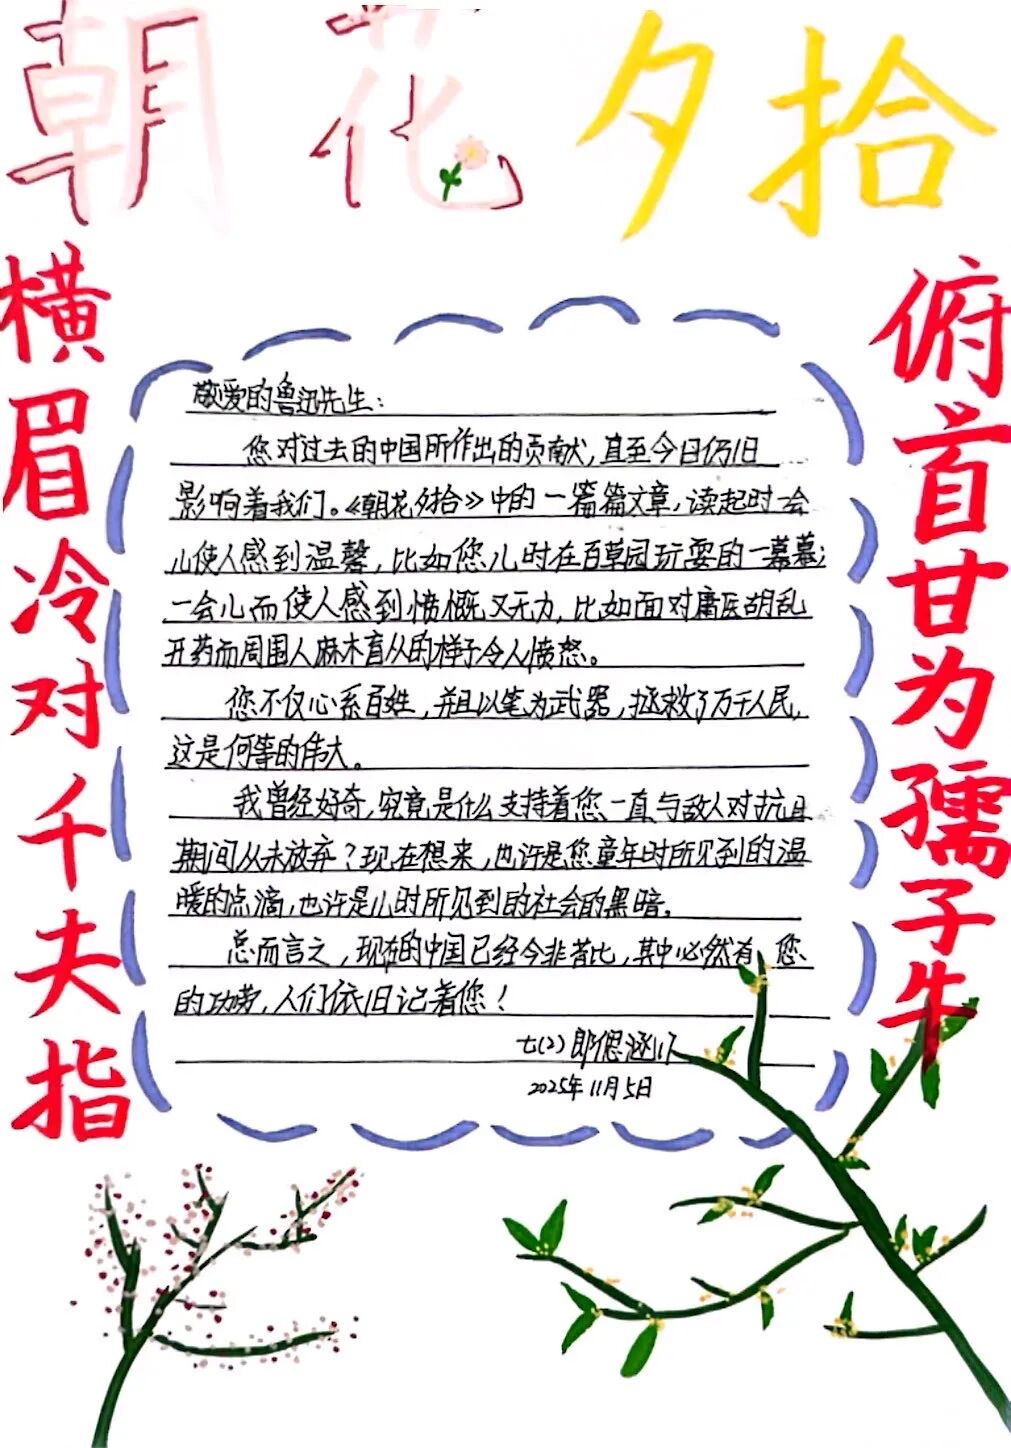 朝花夕拾
横眉冷对千夫指
俯首甘为孺子牛
敬爱的鲁迅先生：
您对过去的中国所作出的贡献，直至今日仍旧
影响着我们。《朝花夕拾》中的一篇篇文章，读起时一会
儿使人感到温馨，比如您儿时在百草园玩耍的一幕幕；
一会儿而使人感到愤慨又无力，比如面对庸医胡乱
开药而周围人麻木盲从的样子令人愤怒。
您不仅心系百姓，并且以笔为武器，拯救了万千人民，
这是何等的伟大。
我曾经好奇，究竟是什么支持着您一直与敌人对抗且
期间从未放弃？现在想来，也许是您童年时所见到的温
暖的点滴，也许是儿时所见到的社会的黑暗。
总而言之，现在的中国已经今非昔比，其中必然有您
的功劳，人们依旧记着您！
七(2) 郎偲涵
2025年11月5日